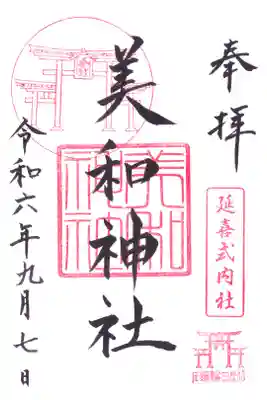 奉拝
延喜式内社
美和神社
美和
神社
令和六年九月七日